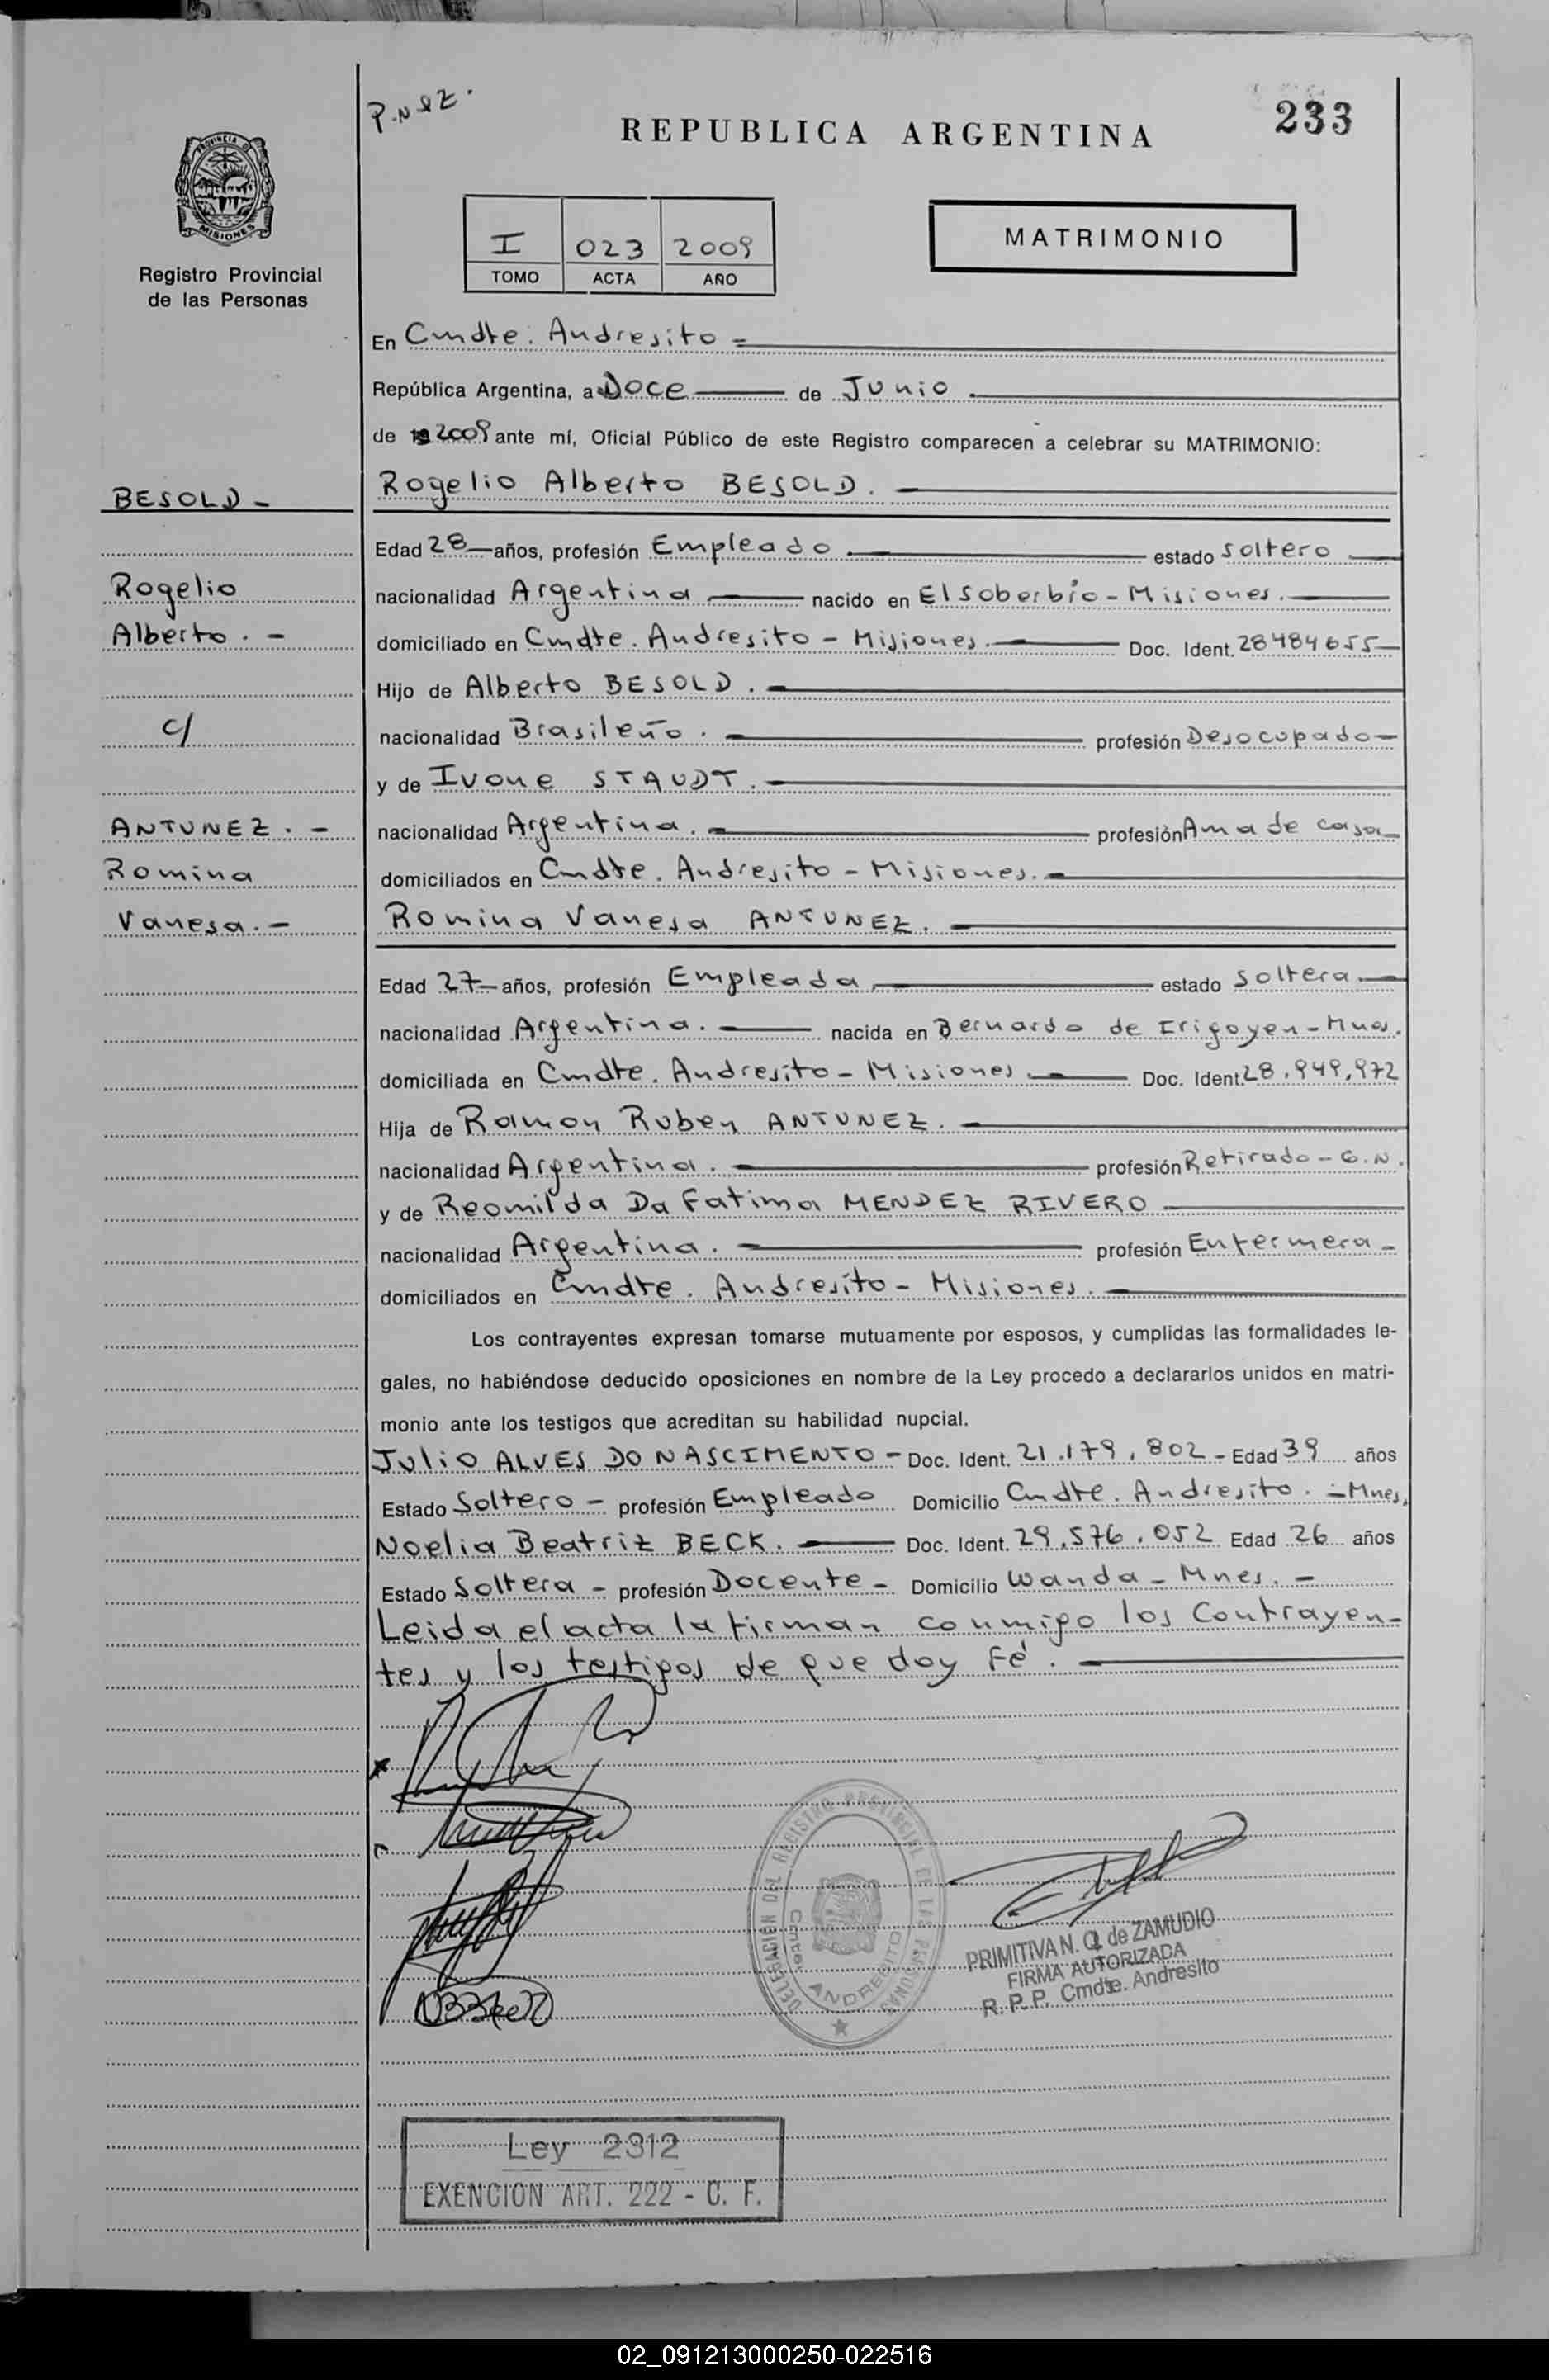 P.NEZ.
REPUBLICA ARGENTINA
233
PROVINCIA DE
MISIONES
Registro Provincial
de las Personas
I 023 2009
TOMO ACTA AÑO
MATRIMONIO
En Cmdte. Andresito =
República Argentina, a Doce de Junio.
de 2009 ante mí, Oficial Público de este Registro comparecen a celebrar su MATRIMONIO:
BESOLD -
Rogelio Alberto BESOLD.
Edad 28 años, profesión Empleado. estado Soltero
Rogelio
nacionalidad Argentina nacido en El Soberbio - Misiones.
Alberto. -
domiciliado en Cmdte. Andresito - Misiones. Doc. Ident. 28484655
Hijo de Alberto BESOLD. -
c/
nacionalidad Brasileño. profesión Desocupado -
y de Ivone STAUDT.
ANTUNEZ. -
nacionalidad Argentina. profesión Ama de casa
Romina
domiciliados en Cmdte. Andresito - Misiones. -
Vanesa. -
Romina Vanesa ANTUNEZ.
Edad 27 años, profesión Empleada estado Soltera
nacionalidad Argentina. nacida en Bernardo de Irigoyen - Mnes.
domiciliada en Cmdte. Andresito - Misiones. Doc. Ident. 28.949.972
Hija de Ramon Ruben ANTUNEZ. -
nacionalidad Argentina. profesión Retirado - G.N.
y de Reomilda Da Fatima MENDEZ RIVERO
nacionalidad Argentina. profesión Enfermera -
domiciliados en Cmdte. Andresito - Misiones.
Los contrayentes expresan tomarse mutuamente por esposos, y cumplidas las formalidades le-
gales, no habiéndose deducido oposiciones en nombre de la Ley procedo a declararlos unidos en matri-
monio ante los testigos que acreditan su habilidad nupcial.
Julio ALVES DO NASCIMENTO - Doc. Ident. 21.179.802 - Edad 39 años
Estado Soltero - profesión Empleado Domicilio Cmdte. Andresito. - Mnes.
Noelia Beatriz BECK. Doc. Ident. 29.576.052 Edad 26 años
Estado Soltera - profesión Docente - Domicilio Wanda - Mnes. -
Leida el acta la firman conmigo los Contrayen-
tes y los testigos de que doy Fé.
DELEGACION DEL REGISTRO PROVINCIAL DE LAS PERSONAS
Cmte. ANDRESITO
PRIMITIVA N. Q. de ZAMUDIO
FIRMA AUTORIZADA
R. P. P. Cmdte. Andresito
Ley 2312
EXENCION ART. 222 - C. F.
02_091213000250-022516